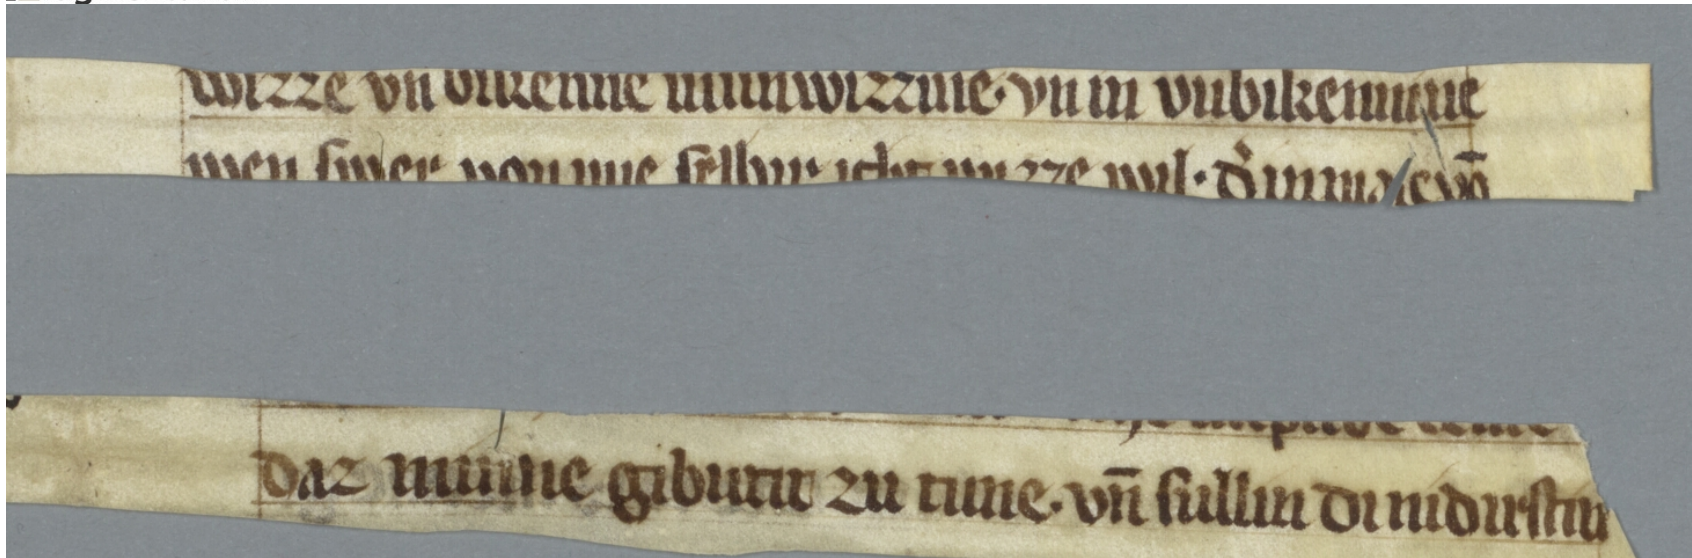 wizze vn̄ bikenne in unwizzine· vn̄ in vnbikennine
wen swer von mīe selbir icht wizze wil· d̓
daz minne gibutit zu tune· vn̄ sullin di nidirstin